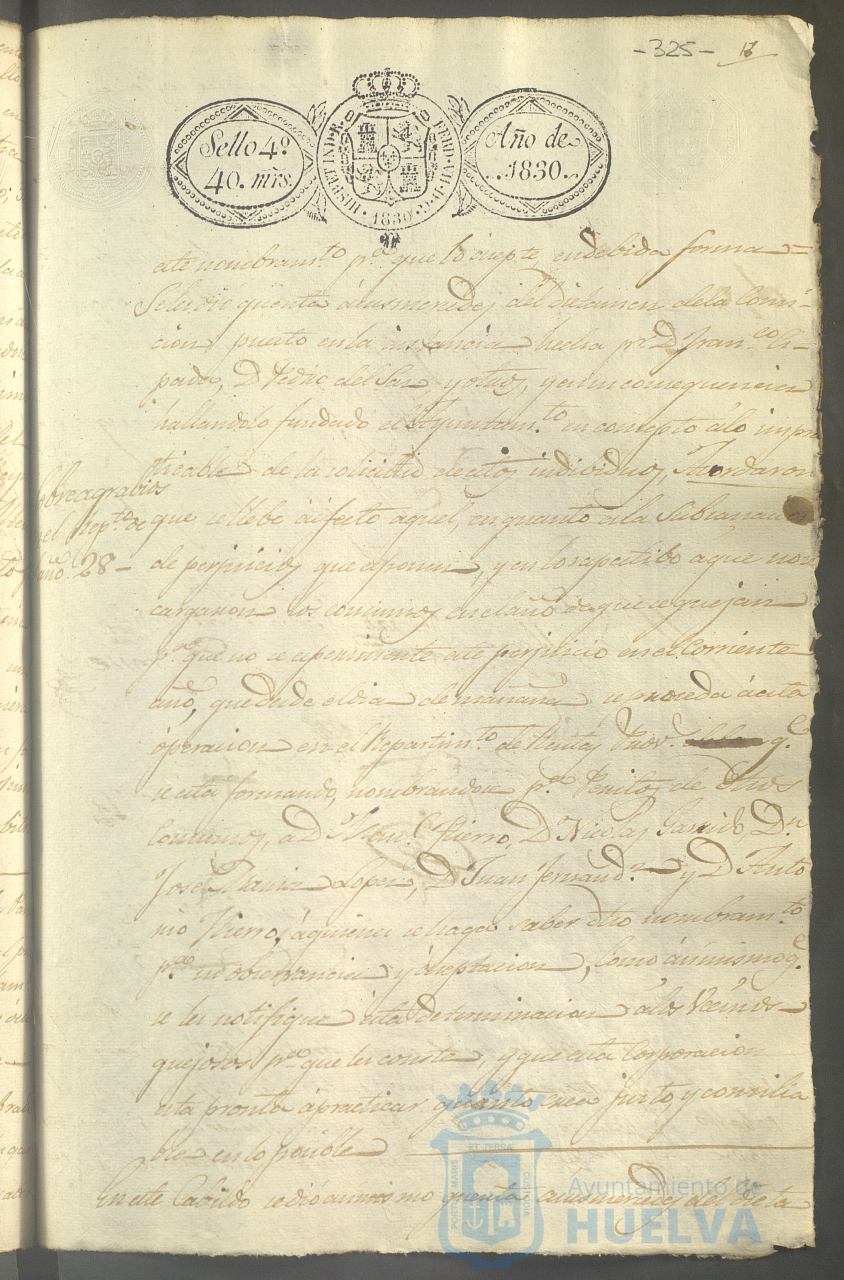 -325- 18
Sello 4º
40. mrs.
HISP. ET IND. R. FERD. VII. D. G. 1830
Año de
1830.
este nombram.to p.a que lo acepte en debida forma =
Se les dió quenta a sus mercedes del dictamen de la Comi-
cion puesto en la instancia hecha pr. D. Fran.co
D. Pedro del Saz y otros, y en su consequencia
hallandolo fundado el Ayuntam.to en concepto a lo impra
ticable de la solicitud de estos individuos, Acordaron
Sobre agrabios
en el Rep.to de
año 28 -
que se llebe a efecto aquel, en quanto a la
de perjuicios que exponen, y en lo respectibo a que no se
cargaron los consumos en el año de que se quejan
p.a que no se esperimente este perjuicio en el Corriente
año, que desde el dia de mañana se proceda á esta
óperacion en el Repartim.to de Rentas Prov.s q.e
se esta formando, nombrandose p.r Peritos de dhos
Consumos, a D. Man.l Hierro, D. Nicolas Garrido, D.n
Jose Maria Lopez, D. Juan Fernand.z y D. Anto
nio Hierro, á quienes se haga saber dho nombram.to
p.a su obserbancia y áceptacion, como ásimismo q.e
se les notifique esta determinacion a los Vecinos
quejosos p.a que les conste, y que esta Corporacion
esta pronta ápracticar quanto crea justo, y consilia
ble en lo posible
En este Cabildo se dió asimismo quenta a sus mercedes del
PORTUS MARIS ET TERRAE CUSTODIA
Ayuntamiento de
HUELVA